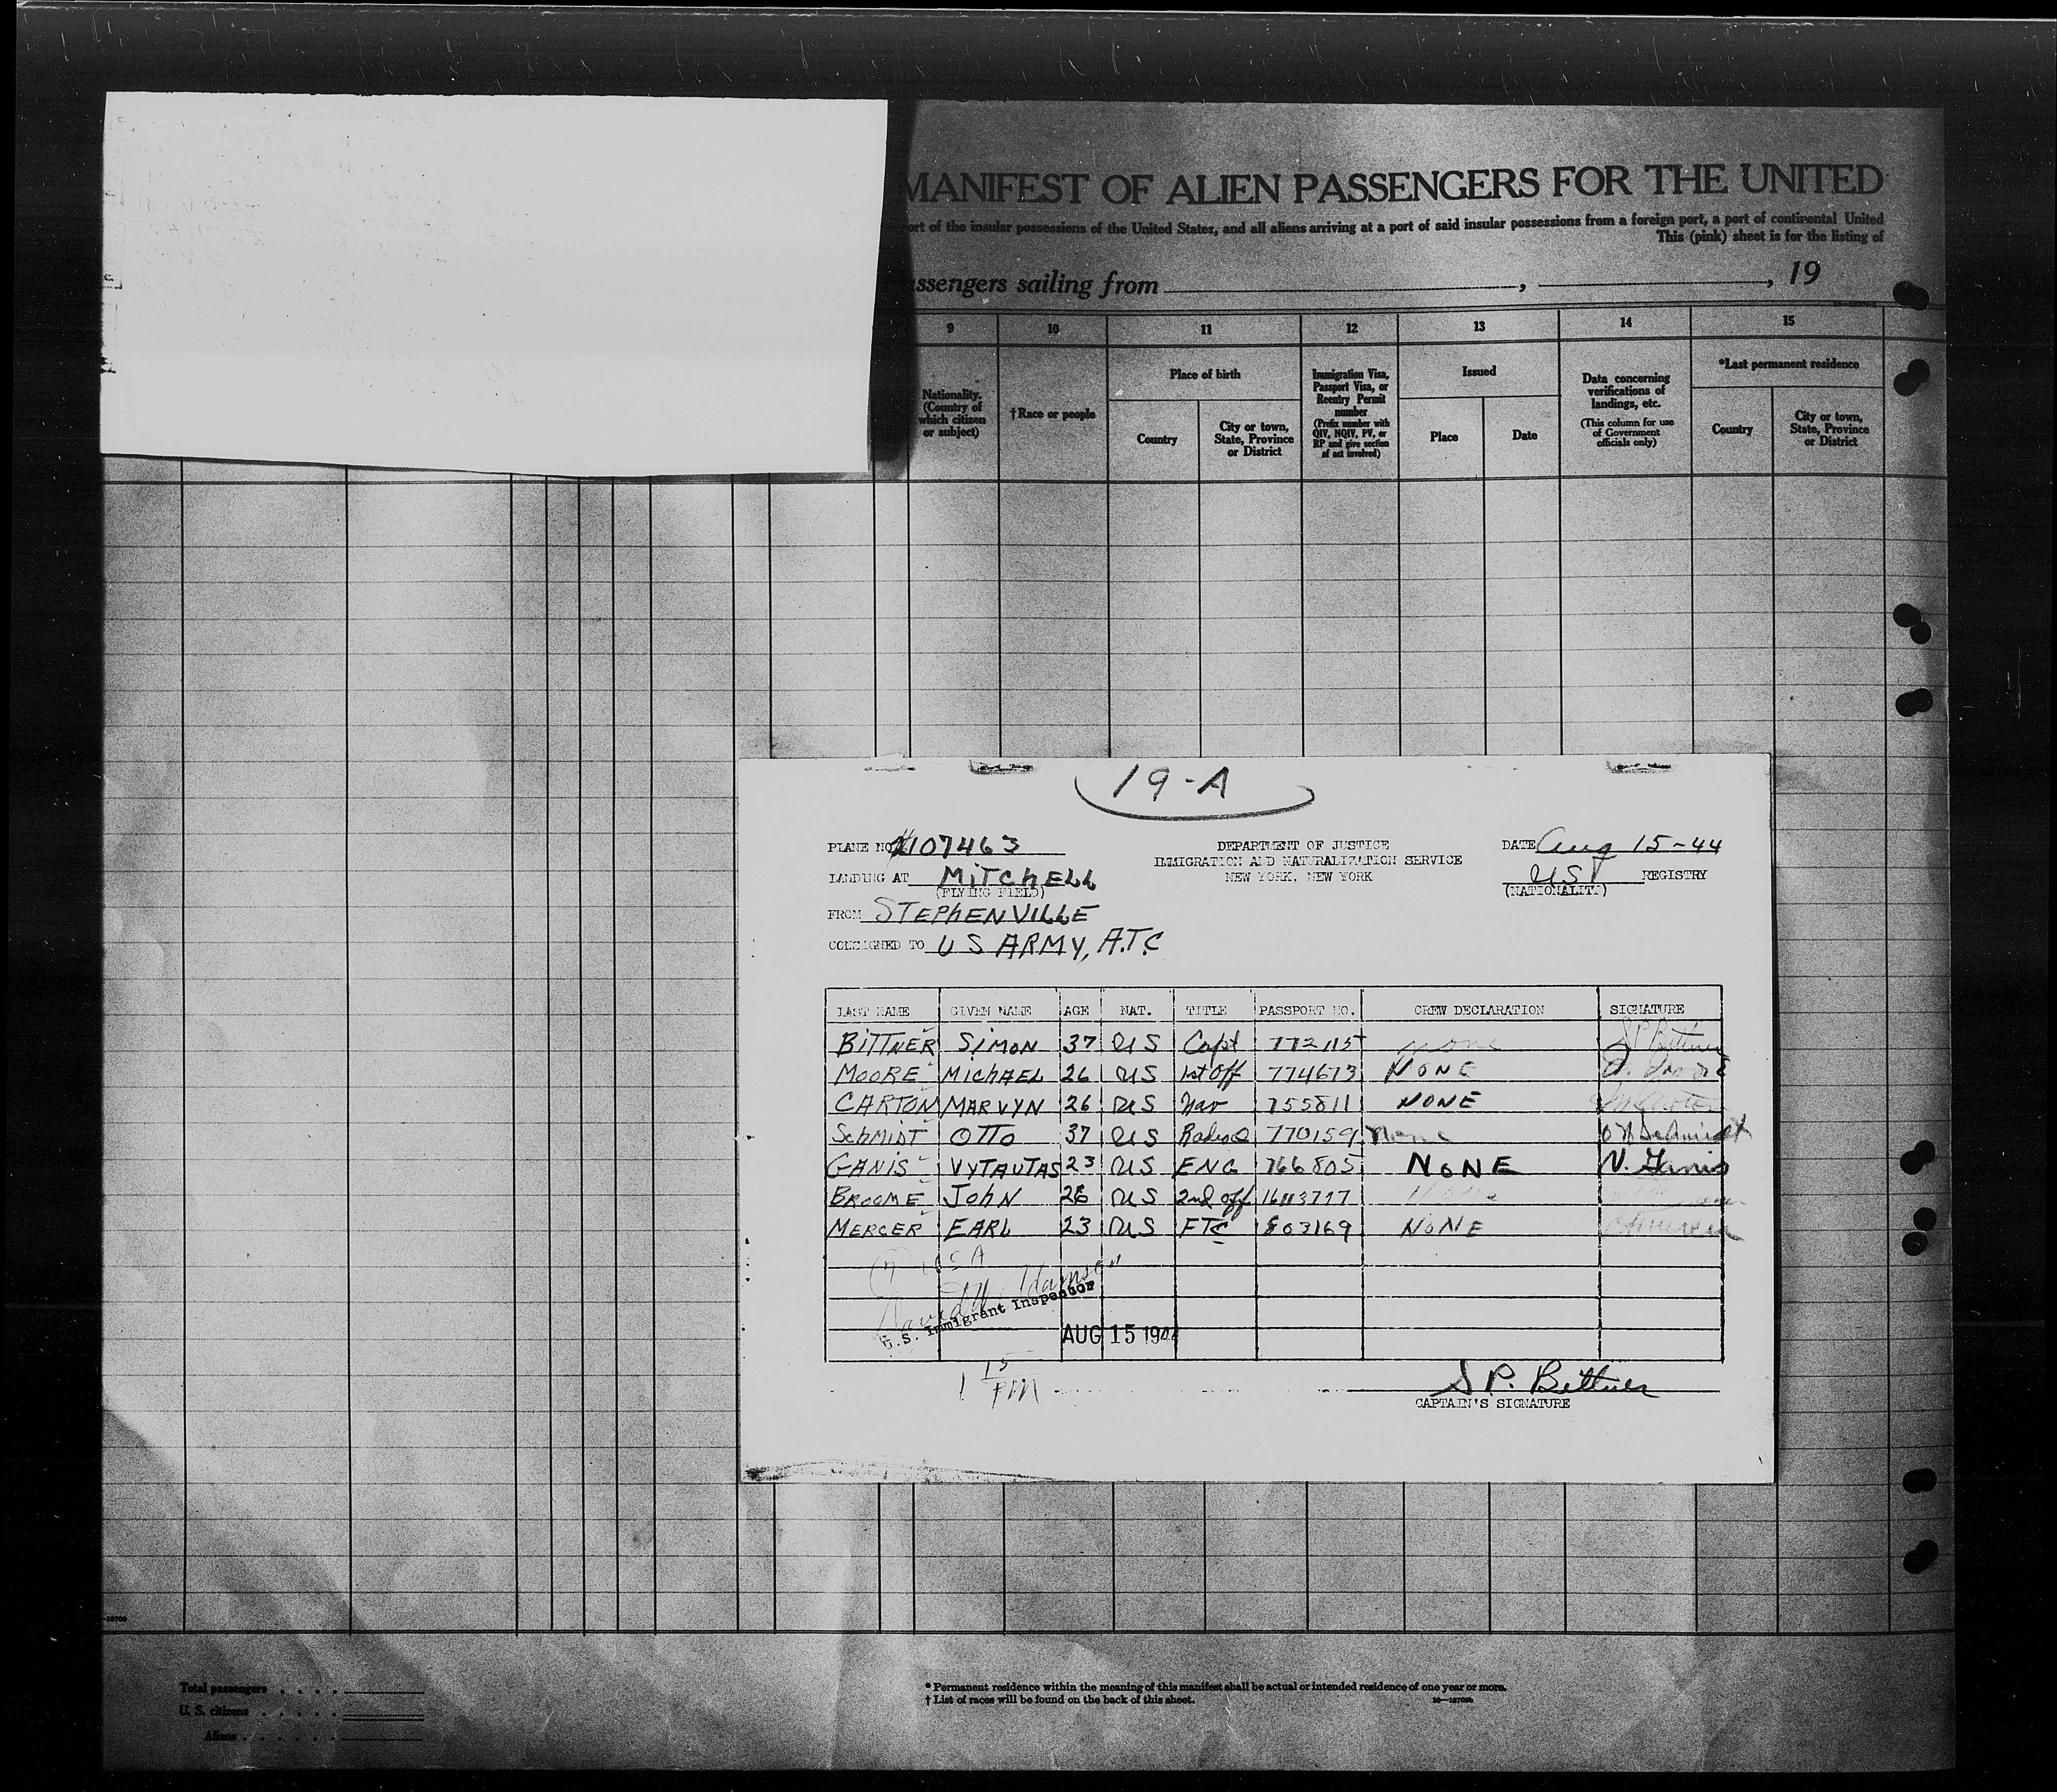 MANIFEST OF ALIEN PASSENGERS FOR THE UNITED
ort of the insular possessions of the United States, and all aliens arriving at a port of said insular possessions from a foreign port, a port of continental United
This (pink) sheet is for the listing of
assengers sailing from , , 19
9 10 11 12 13 14 15
Nationality. (Country of which citizen or subject)
†Race or people
Place of birth
Country
City or town, State, Province or District
Immigration Visa, Passport Visa, or Reentry Permit number
(Prefix number with QIV, NQIV, PV, or RP and give section of act involved)
Issued
Place
Date
Data concerning verifications of landings, etc.
(This column for use of Government officials only)
*Last permanent residence
Country
City or town, State, Province or District
19-A
PLANE NO. 107463
DEPARTMENT OF JUSTICE
IMMIGRATION AND NATURALIZATION SERVICE
NEW YORK, NEW YORK
DATE Aug 15-44
LANDING AT MITCHELL
(FLYING FIELD)
REGISTRY
(NATIONALITY)
FROM STEPHENVILLE
CONSIGNED TO US ARMY, A.T.C
LAST NAME GIVEN NAME AGE NAT. TITLE PASSPORT NO. CREW DECLARATION SIGNATURE
BITTNER SIMON 37 US Capt 772115 none SP Bittner
MOORE MICHAEL 26 US 1st Off 774673 NONE
CARTON MARVYN 26 US Nav 755811 NONE
SCHMIDT OTTO 37 US Radio 770159 None
GANIS VYTAUTAS 23 US ENG 766805 NONE V. Ganis
BROOME JOHN 26 US 2nd off None
MERCER EARL 23 US FTC 803169 NONE
(7) USA
Adamson
U.S. Immigrant Inspector
AUG 15 1944
1 15 PM
S P. Bittner
CAPTAIN'S SIGNATURE
Total passengers
U. S. citizens
Aliens
* Permanent residence within the meaning of this manifest shall be actual or intended residence of one year or more.
† List of races will be found on the back of this sheet.